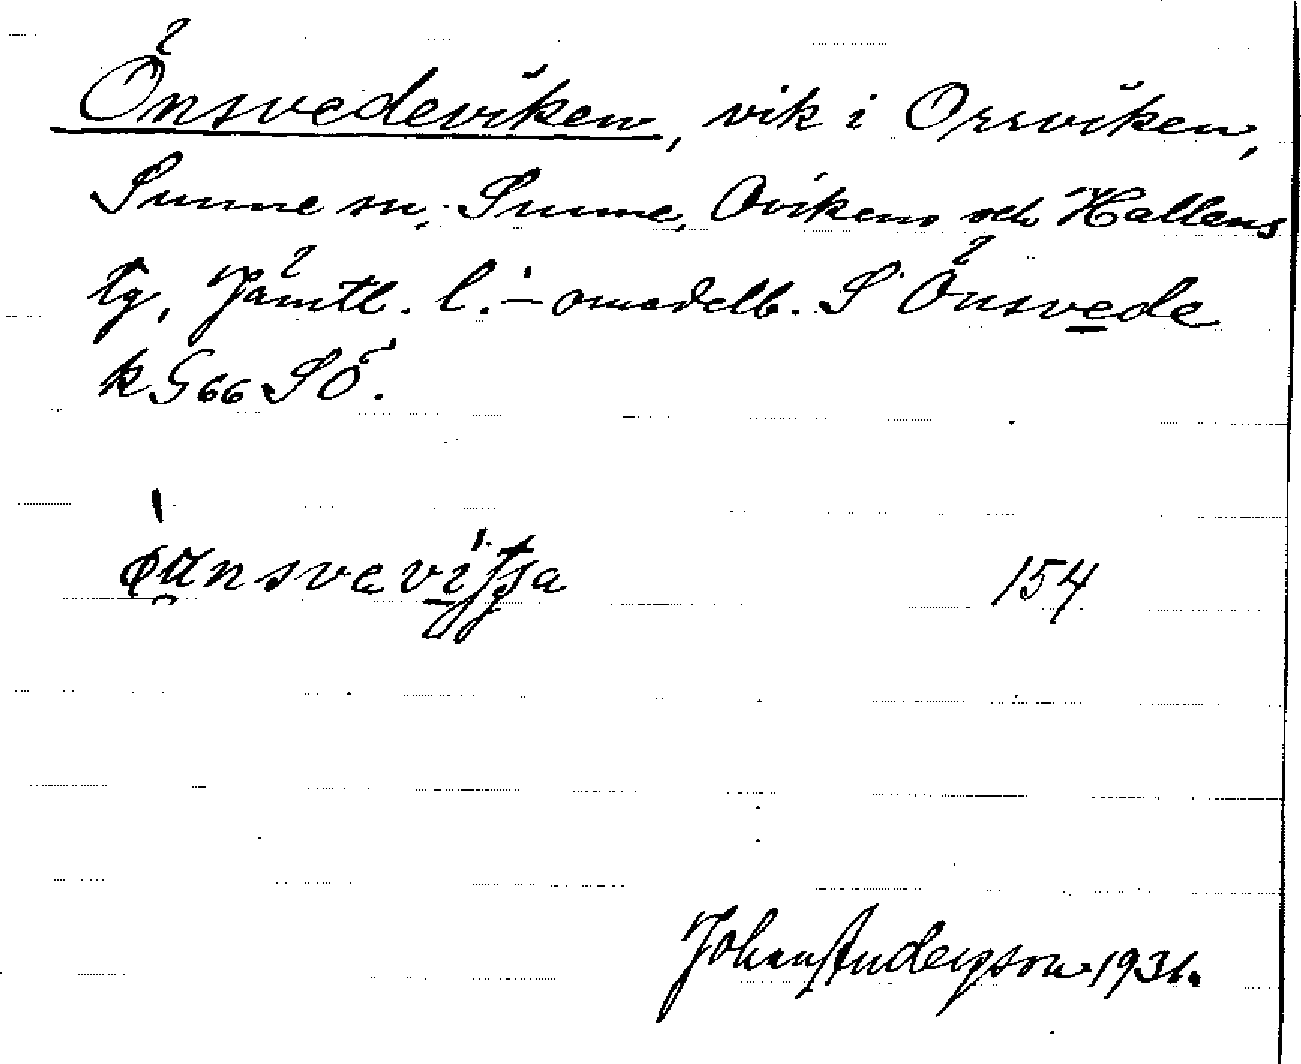 Önsvedeviken, vik i Orrviken,
Sunne sn, Sunne, Ovikens och Hallens
tg, Jämtl. l. – omedelb. S Önsvede
k G 66 SÖ.
154
Johan Anderson 1931.